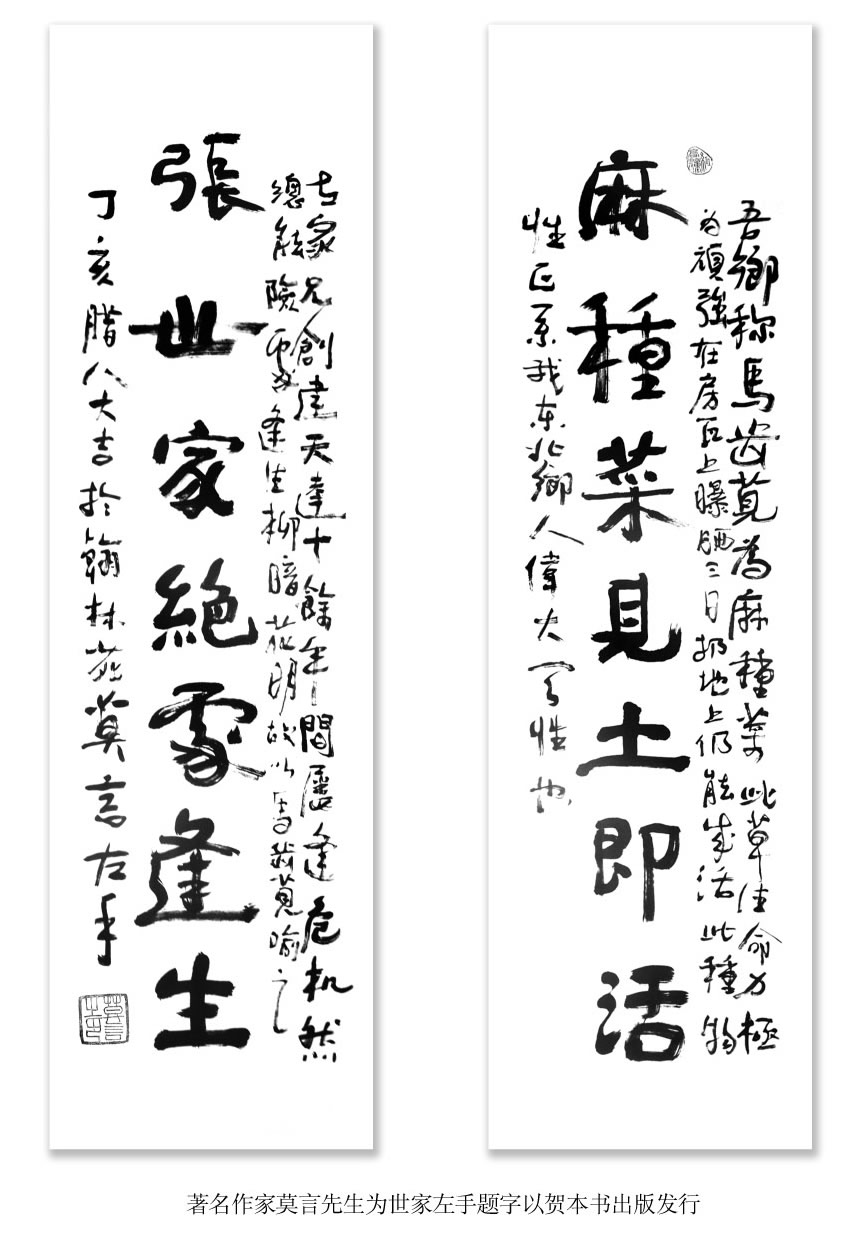 麻種菜見土即活
吾鄉称馬齿莧為麻種菜此草生命力極
为頑強在房瓦上曝晒三日扔地上仍能成活此種物
性正系我东北鄉人偉大之性也
張世家絕處逢生
世家兄創建天達十餘年間屢逢危机然
總能險處逢生柳暗花明故以馬齿莧喻之
丁亥腊八大吉於翰林苑莫言左手
著名作家莫言先生为世家左手题字以贺本书出版发行